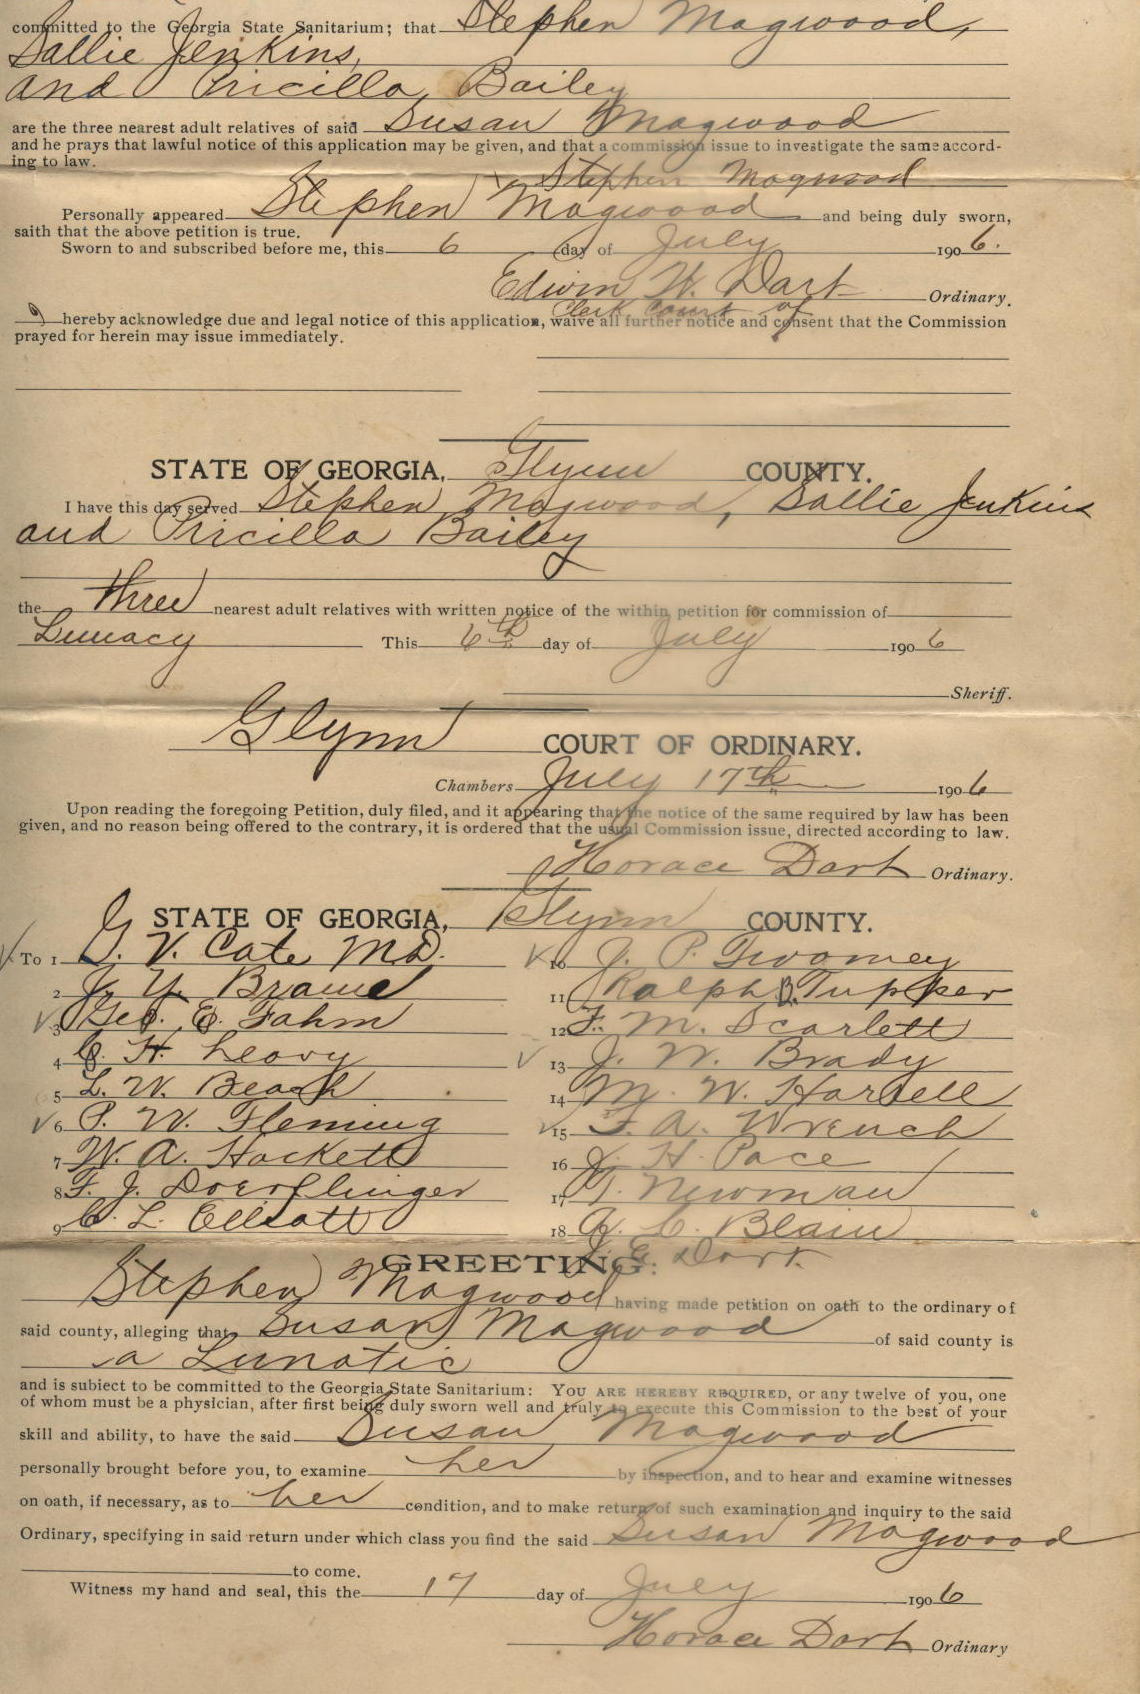 committed to the Georgia State Sanitarium; that Stephen Magwood,
Sallie Jenkins,
and Pricilla Bailey
are the three nearest adult relatives of said Susan Magwood
and he prays that lawful notice of this application may be given, and that a commission issue to investigate the same accord-
ing to law.
Stephen Magwood
Personally appeared Stephen Magwood and being duly sworn,
saith that the above petition is true.
Sworn to and subscribed before me, this 6 day of July 1906.
Edwin W. Dart Ordinary.
Clerk Court of
hereby acknowledge due and legal notice of this application, waive all further notice and consent that the Commission
prayed for herein may issue immediately.
STATE OF GEORGIA, Glynn COUNTY.
I have this day served Stephen Magwood, Sallie Jenkins
and Pricilla Bailey
the three nearest adult relatives with written notice of the within petition for commission of
Lunacy This 6th day of July 1906
Sheriff.
Glynn COURT OF ORDINARY.
Chambers July 17th 1906
Upon reading the foregoing Petition, duly filed, and it appearing that the notice of the same required by law has been
given, and no reason being offered to the contrary, it is ordered that the usual Commission issue, directed according to law.
Horace Dart Ordinary.
STATE OF GEORGIA, Glynn COUNTY.
To 1 G. V. Cate M.D. 10 J. P. Twomey
2 J. Y. Brame 11 Ralph B. Tupper
3 Geo. E. Fahm 12 F. M. Scarlett
4 C. H. Leavy 13 J. W. Brady
5 L. W. Beach 14 M. W. Harsell
6 P. W. Fleming 15 F. A. Wrench
7 W. A. Hackett 16 J. H. Pace
8 F. J. Doerflinger 17 T. Newman
9 C. L. Elliott 18 A. C. Blain
J. E. Dart.
GREETING:
Stephen Magwood having made petition on oath to the ordinary of
said county, alleging that Susan Magwood of said county is
a Lunatic
and is subject to be committed to the Georgia State Sanitarium: YOU ARE HEREBY REQUIRED, or any twelve of you, one
of whom must be a physician, after first being duly sworn well and truly to execute this Commission to the best of your
skill and ability, to have the said Susan Magwood
personally brought before you, to examine her by inspection, and to hear and examine witnesses
on oath, if necessary, as to her condition, and to make return of such examination and inquiry to the said
Ordinary, specifying in said return under which class you find the said Susan Magwood
to come.
Witness my hand and seal, this the 17 day of July 1906
Horace Dart Ordinary